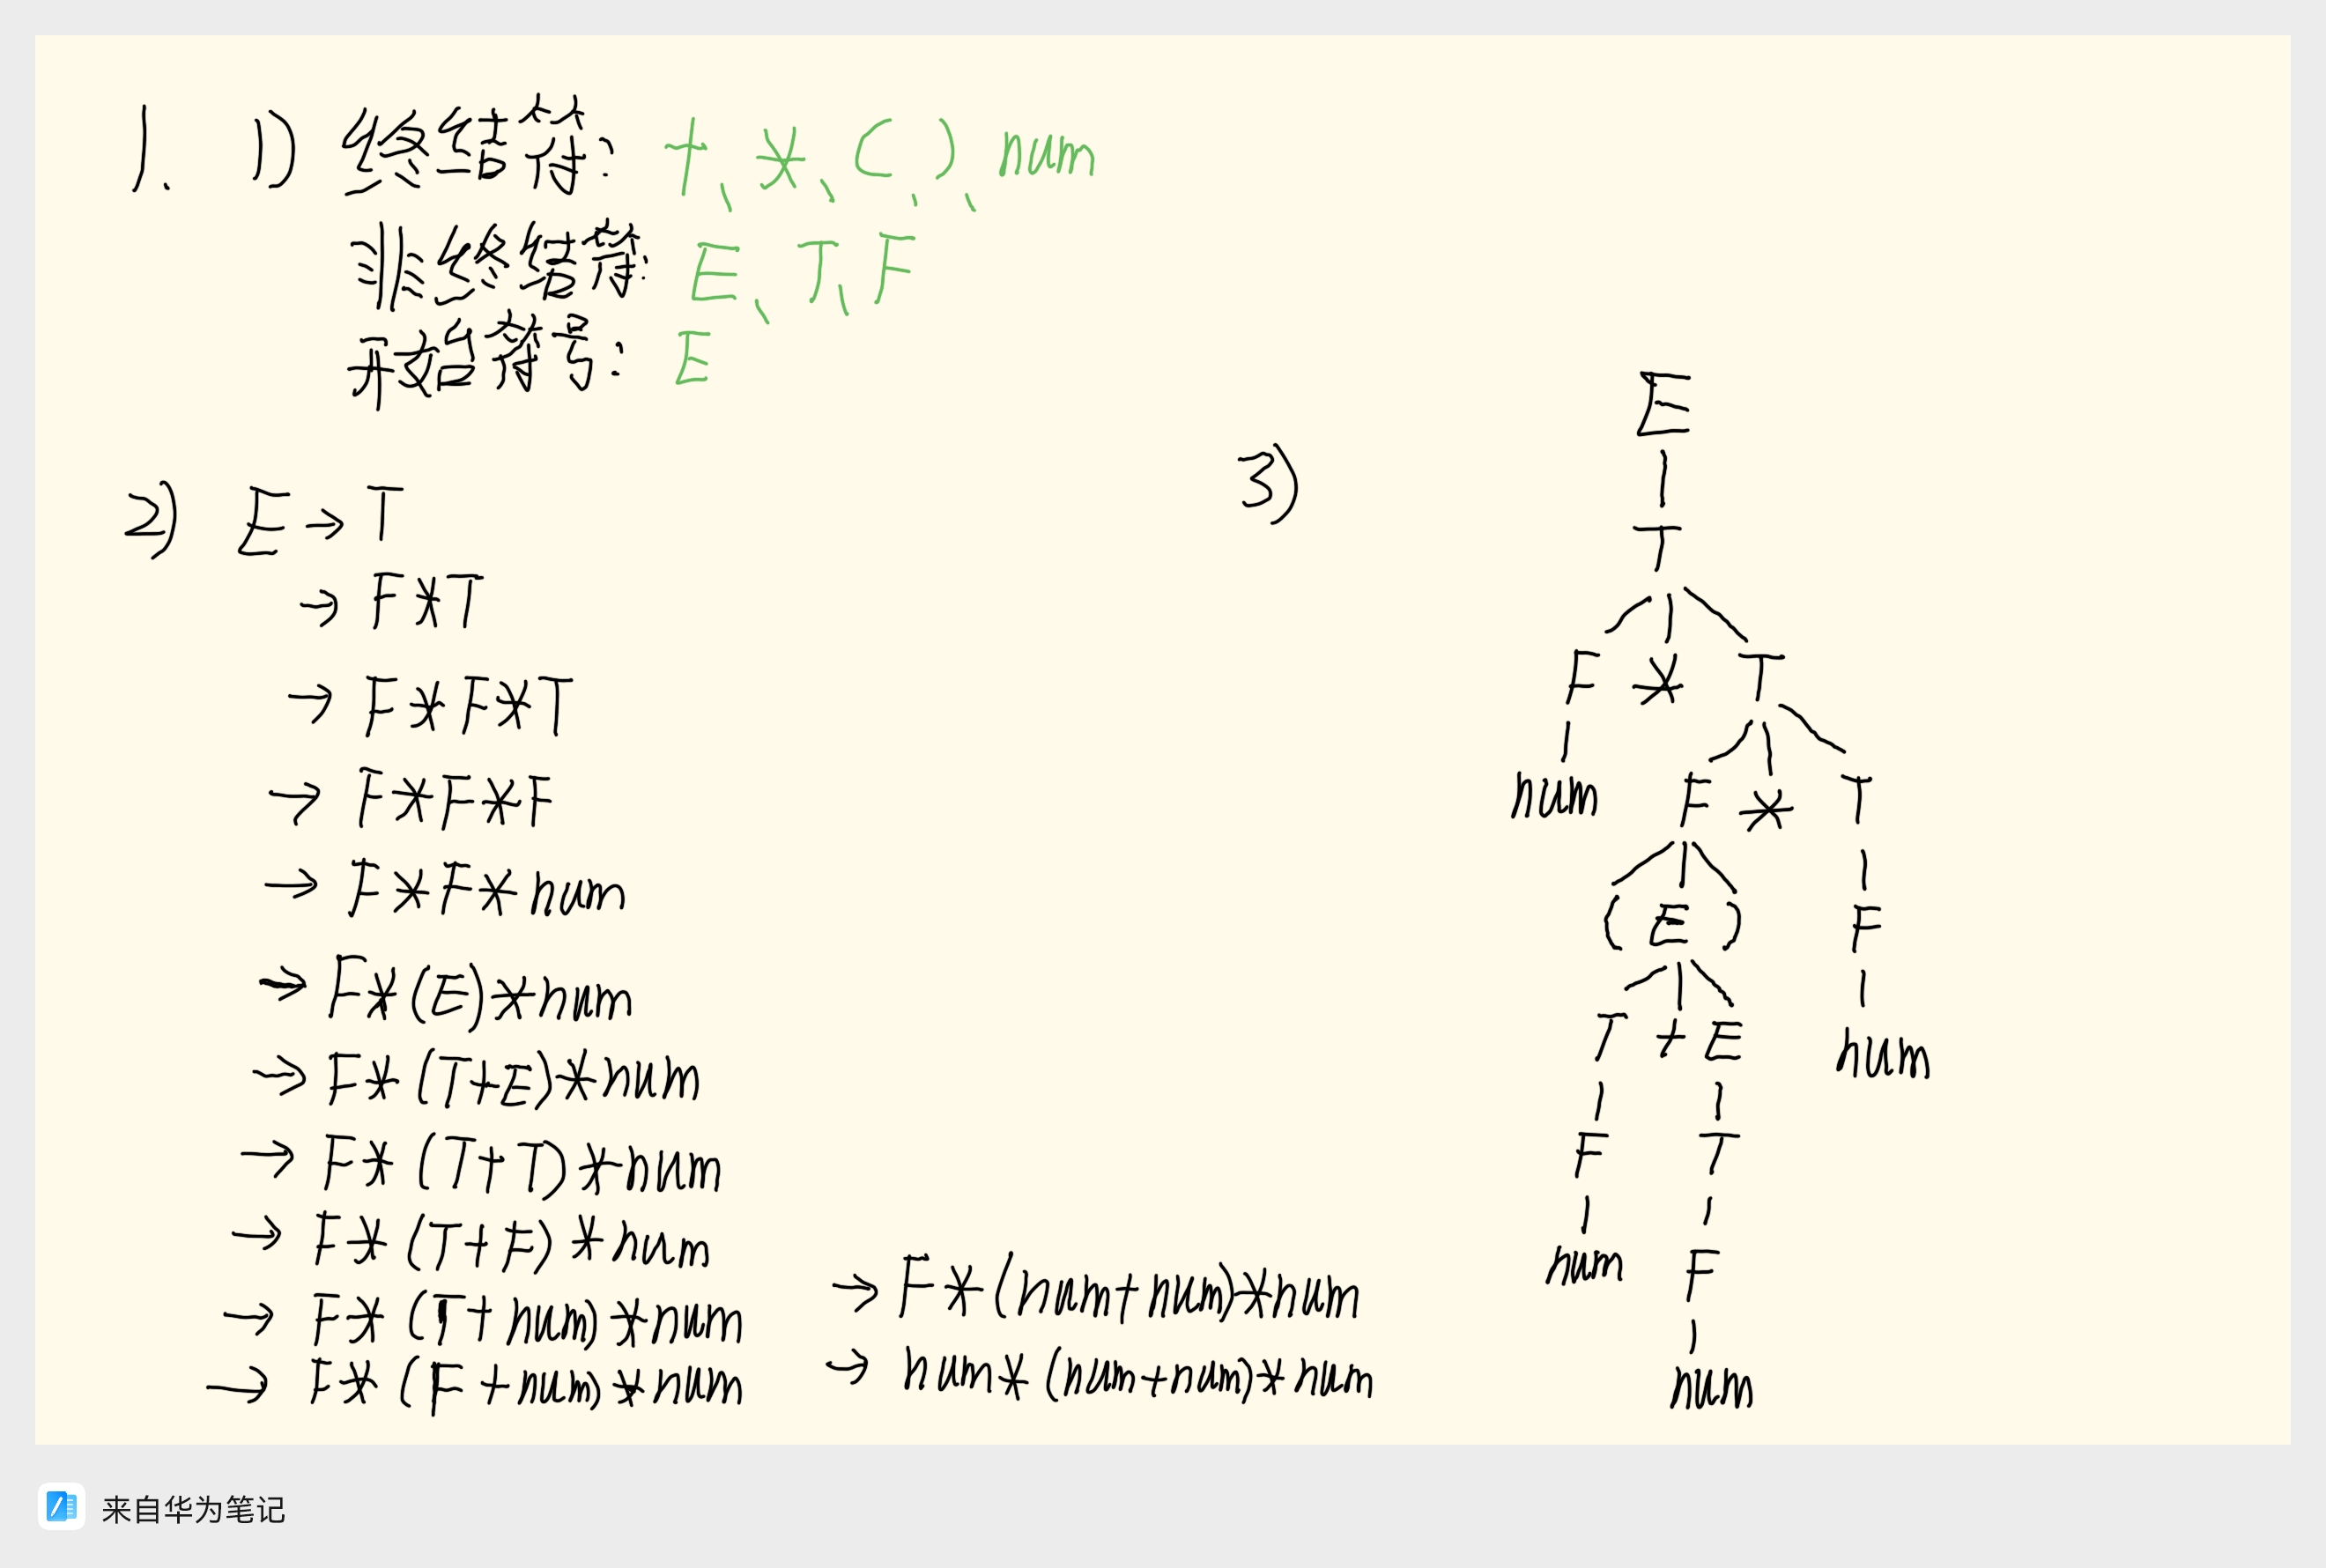 1. 1) 终结符: +、*、(、)、num
非终结符: E、T、F
开始符号: E
2) E → T
→ F*T
→ F*F*T
→ F*F*F
→ F*F*num
→ F*(E)*num
→ F*(T+E)*num
→ F*(T+T)*num
→ F*(T+F)*num
→ F*(T+num)*num
→ F*(F+num)*num
→ F*(num+num)*num
→ num*(num+num)*num
3)
E
T
F * T
num F * T
( E ) F
T + E num
F T
num F
num
来自华为笔记